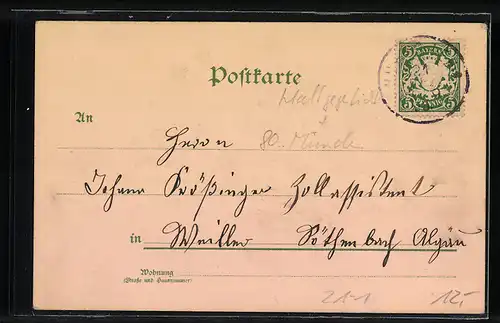 BAYERN
5 5
5 PFENNIG 5
Postkarte
An
Herrn
Johann Zollassistent
in Weiller Röthenbach Algäu
Wohnung
(Straße und Hausnummer)
21-1 12,-